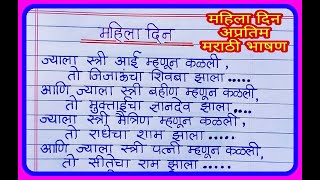 महिला दिन
अप्रतिम
मराठी भाषण
महिला दिन
ज्याला स्त्री आई म्हणून कळली,
तो जिजाऊंचा शिवबा झाला.....
आणि ज्याला स्त्री बहीण म्हणून कळली,
तो मुक्ताईचा ज्ञानदेव झाला....
ज्याला स्त्री मैत्रिण म्हणून कळली,
तो राधेचा शाम झाला.....
आणि ज्याला स्त्री पत्नी म्हणून कळली,
तो सीतेचा राम झाला.....